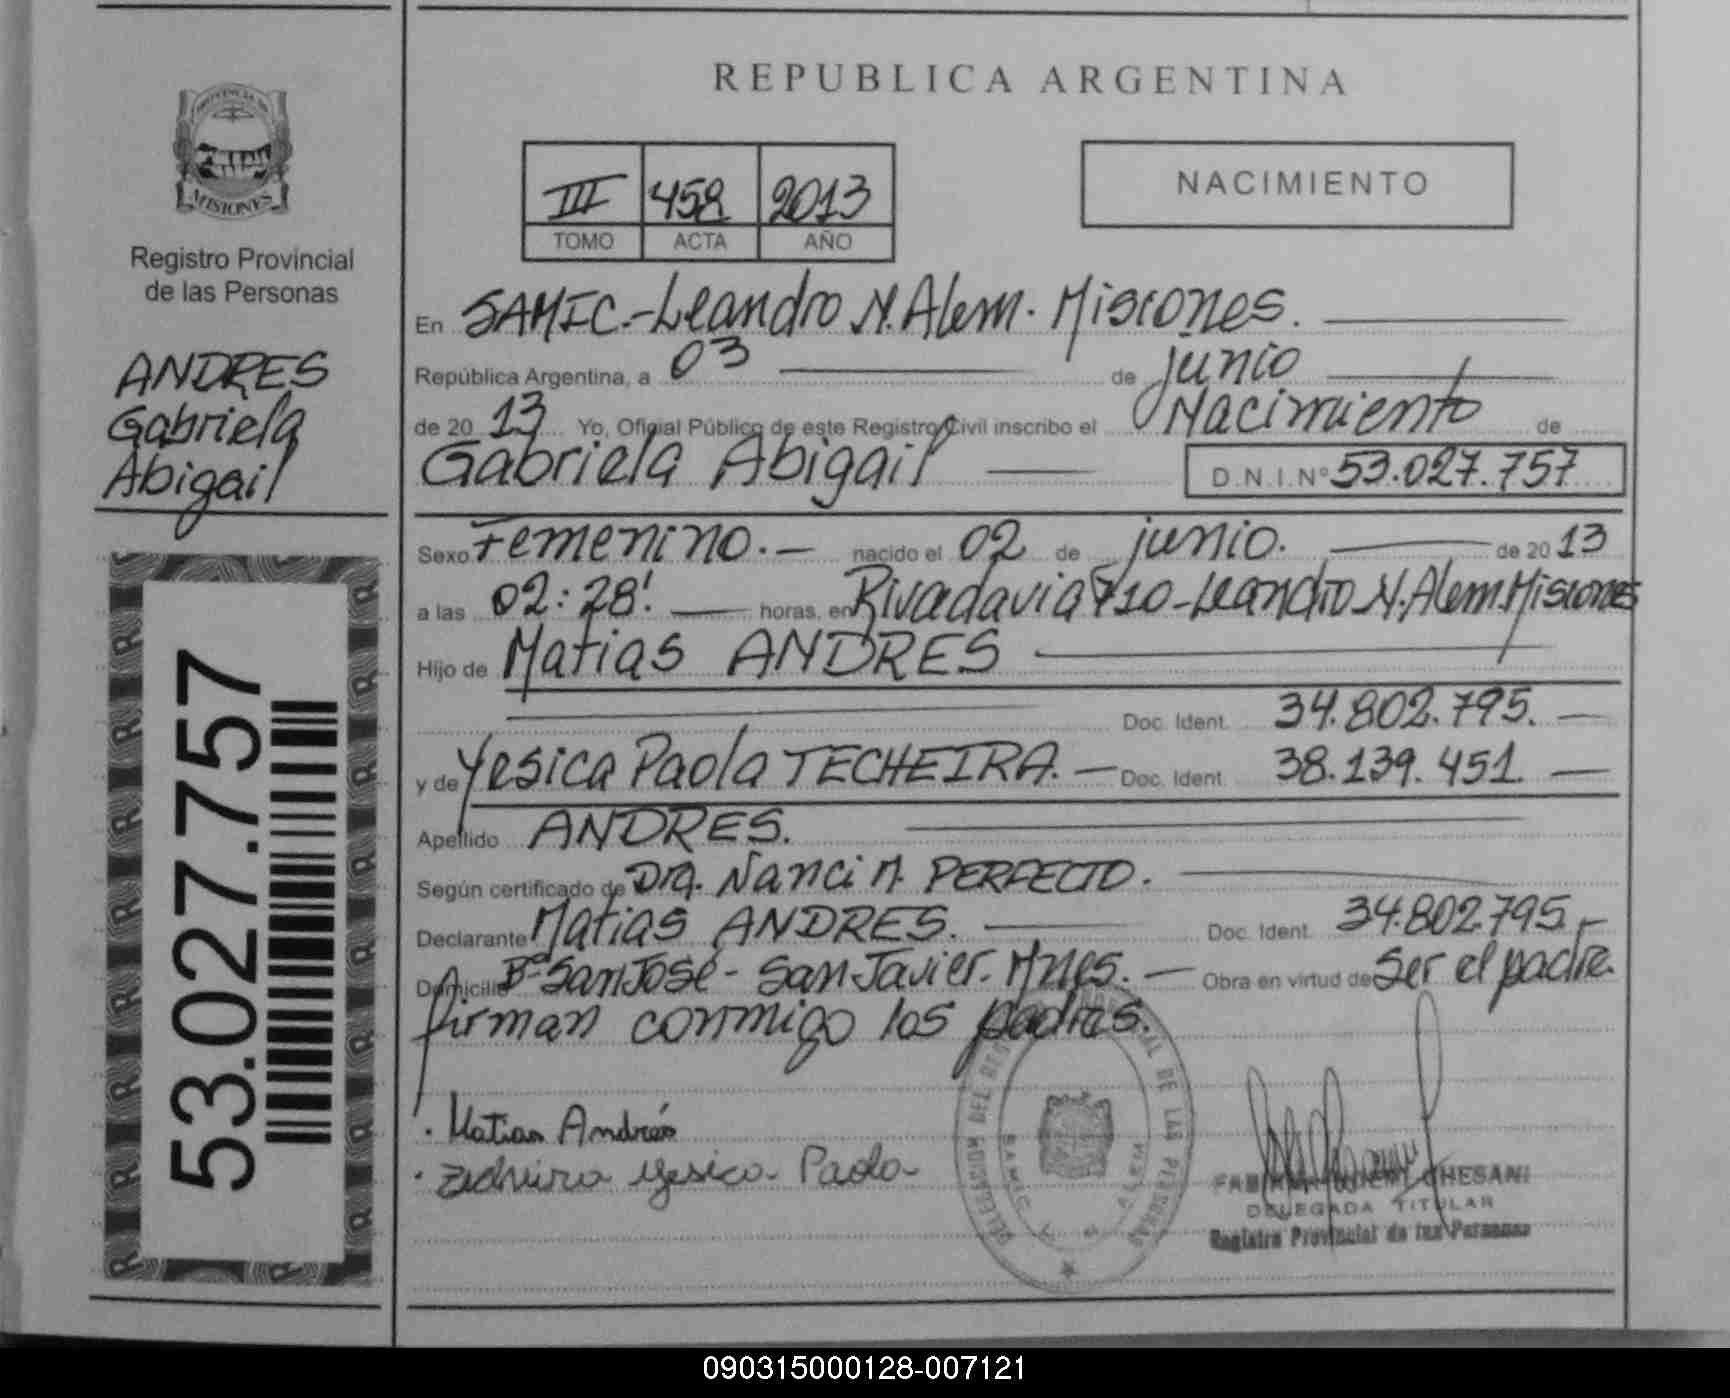 REPUBLICA ARGENTINA
PROVINCIA DE
MISIONES
Registro Provincial
de las Personas
ANDRES
Gabriela
Abigail
53.027.757
III 458 2013
TOMO ACTA AÑO
NACIMIENTO
En SAMIC.-Leandro N. Alem. Misiones.
República Argentina, a 03 de junio
de 20 13 Yo, Oficial Público de este Registro Civil inscribo el Nacimiento de
Gabriela Abigail D.N.I.Nº 53.027.757
Sexo Femenino.- nacido el 02 de junio. de 20 13
a las 02:28'. horas, en Rivadavia 710-Leandro N. Alem. Misiones
Hijo de Matias ANDRES
Doc. Ident. 34.802.795.
y de Yesica Paola TECHEIRA.- Doc. Ident. 38.139.451
Apellido ANDRES.
Según certificado de Dra. Nanci A. PERFECTO.
Declarante Matias ANDRES. Doc. Ident. 34.802.795.-
Domicilio Bº San José - San Javier. Mnes.- Obra en virtud de Ser el padre.
firman conmigo los padres.
. Matias Andrés
. Yesica Paola
DELEGACION DEL REGISTRO PROVINCIAL DE LAS PERSONAS
SAMIC ALEM
CHESANI
DELEGADA TITULAR
Registro Provincial de las Personas
090315000128-007121